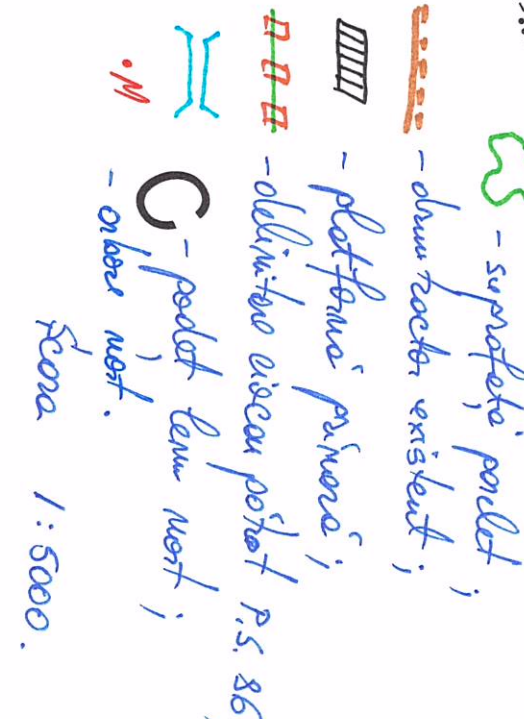 - suprafeță parchet;
- drum tractor existent;
- platformă primară;
- delimitare uscau pârât P.S. 86,
- podeț lemn mort;
.M - arbore mort.
Scara 1:5000.